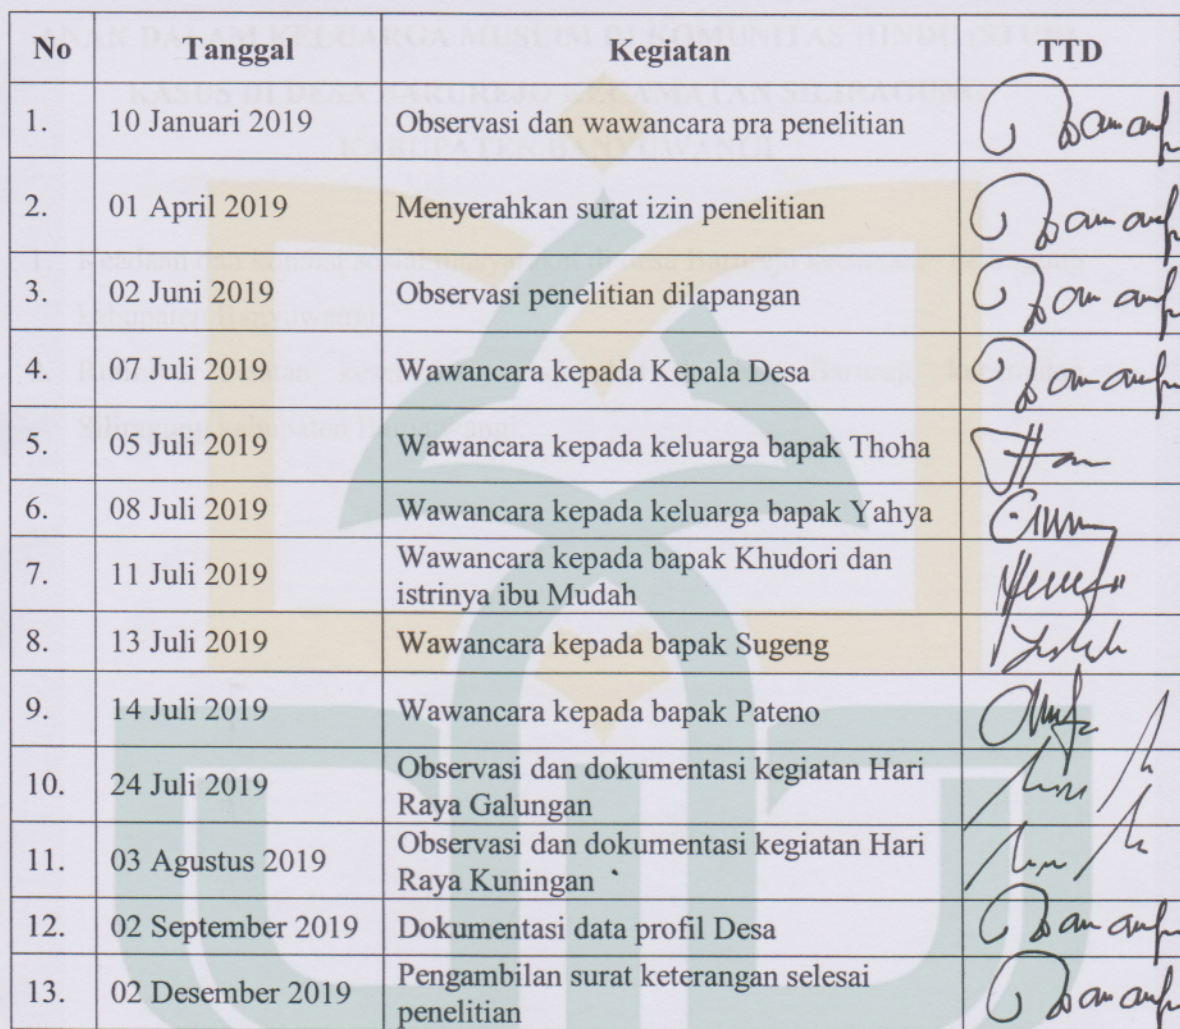 No Tanggal Kegiatan TTD
1. 10 Januari 2019 Observasi dan wawancara pra penelitian
2. 01 April 2019 Menyerahkan surat izin penelitian
3. 02 Juni 2019 Observasi penelitian dilapangan
4. 07 Juli 2019 Wawancara kepada Kepala Desa
5. 05 Juli 2019 Wawancara kepada keluarga bapak Thoha
6. 08 Juli 2019 Wawancara kepada keluarga bapak Yahya
7. 11 Juli 2019 Wawancara kepada bapak Khudori dan
istrinya ibu Mudah
8. 13 Juli 2019 Wawancara kepada bapak Sugeng
9. 14 Juli 2019 Wawancara kepada bapak Pateno
10. 24 Juli 2019 Observasi dan dokumentasi kegiatan Hari
Raya Galungan
11. 03 Agustus 2019 Observasi dan dokumentasi kegiatan Hari
Raya Kuningan
12. 02 September 2019 Dokumentasi data profil Desa
13. 02 Desember 2019 Pengambilan surat keterangan selesai
penelitian